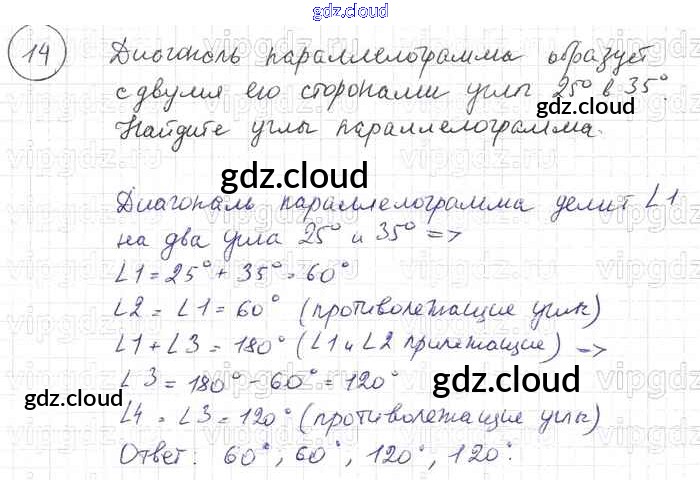 gdz.cloud
14 Диагональ параллелограмма образует
с двумя его сторонами углы 25° и 35°.
gdz.cloud
Найдите углы параллелограмма.
gdz.cloud
Диагональ параллелограмма делит ∠1
на два угла 25° и 35° =>
∠1 = 25° + 35° = 60°
∠2 = ∠1 = 60° (противолежащие углы)
∠1 + ∠3 = 180° (∠1 и ∠2 прилежащие) =>
∠3 = 180° - 60° = 120°
gdz.cloud
gdz.cloud
∠4 = ∠3 = 120° (противолежащие углы)
Ответ: 60°, 60°, 120°, 120°.